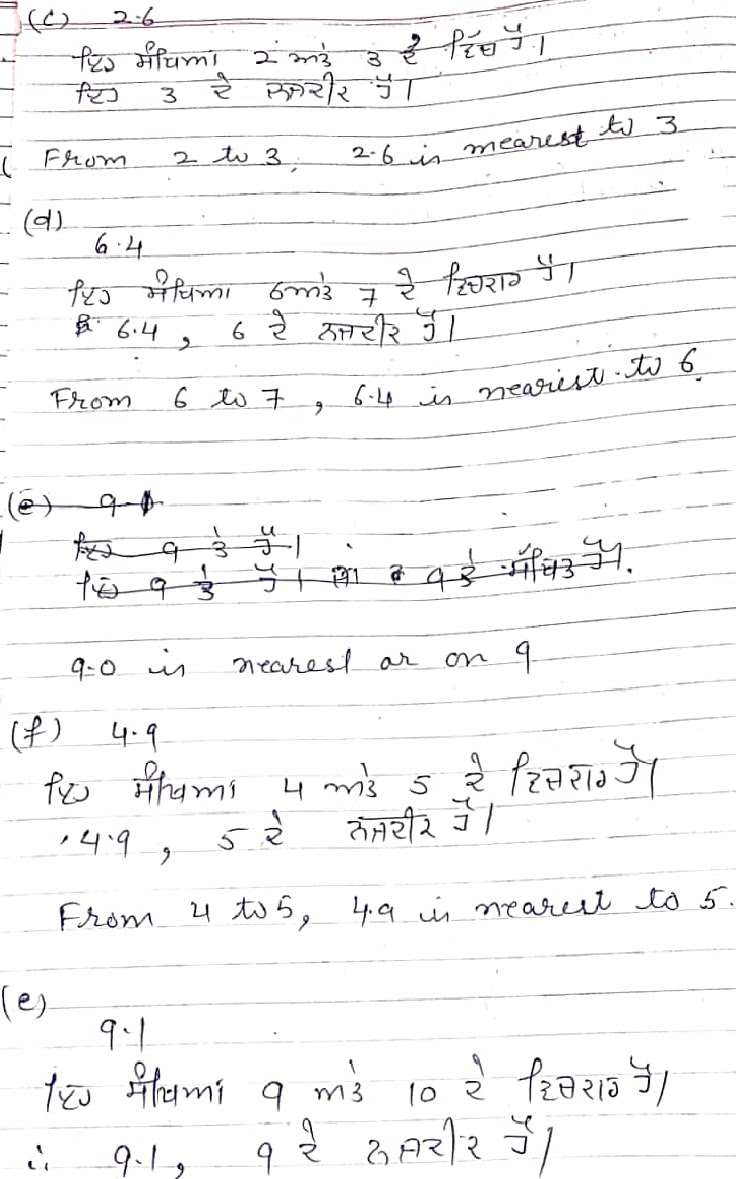 (c) 2.6
ਇਹ ਸੰਖਿਆਂ 2 ਅਤੇ 3 ਦੇ ਵਿੱਚ ਹੈ।
ਇਹ 3 ਦੇ ਨਜਦੀਕ ਹੈ।
From 2 to 3, 2.6 is nearest to 3
(d)
6.4
ਇਹ ਸੰਖਿਆ 6 ਅਤੇ 7 ਦੇ ਵਿਚਕਾਰ ਹੈ।
6.4, 6 ਦੇ ਨਜਦੀਕ ਹੈ।
From 6 to 7, 6.4 is nearest to 6.
(e) 9.
ਇਹ 9 ਤੇ ਹੈ।
ਇਹ 9 ਤੇ ਹੈ। ਜਾਂ 9 ਤੇ ਸਥਿਤ ਹੈ।
9.0 is nearest ar on 9
(f) 4.9
ਇਹ ਸੰਖਿਆਂ 4 ਅਤੇ 5 ਦੇ ਵਿਚਕਾਰ ਹੈ।
4.9, 5 ਦੇ ਨਜਦੀਕ ਹੈ।
From 4 to 5, 4.9 is nearest to 5.
(e)
9.1
ਇਹ ਸੰਖਿਆਂ 9 ਅਤੇ 10 ਦੇ ਵਿਚਕਾਰ ਹੈ।
∴ 9.1, 9 ਦੇ ਨਜਦੀਕ ਹੈ।